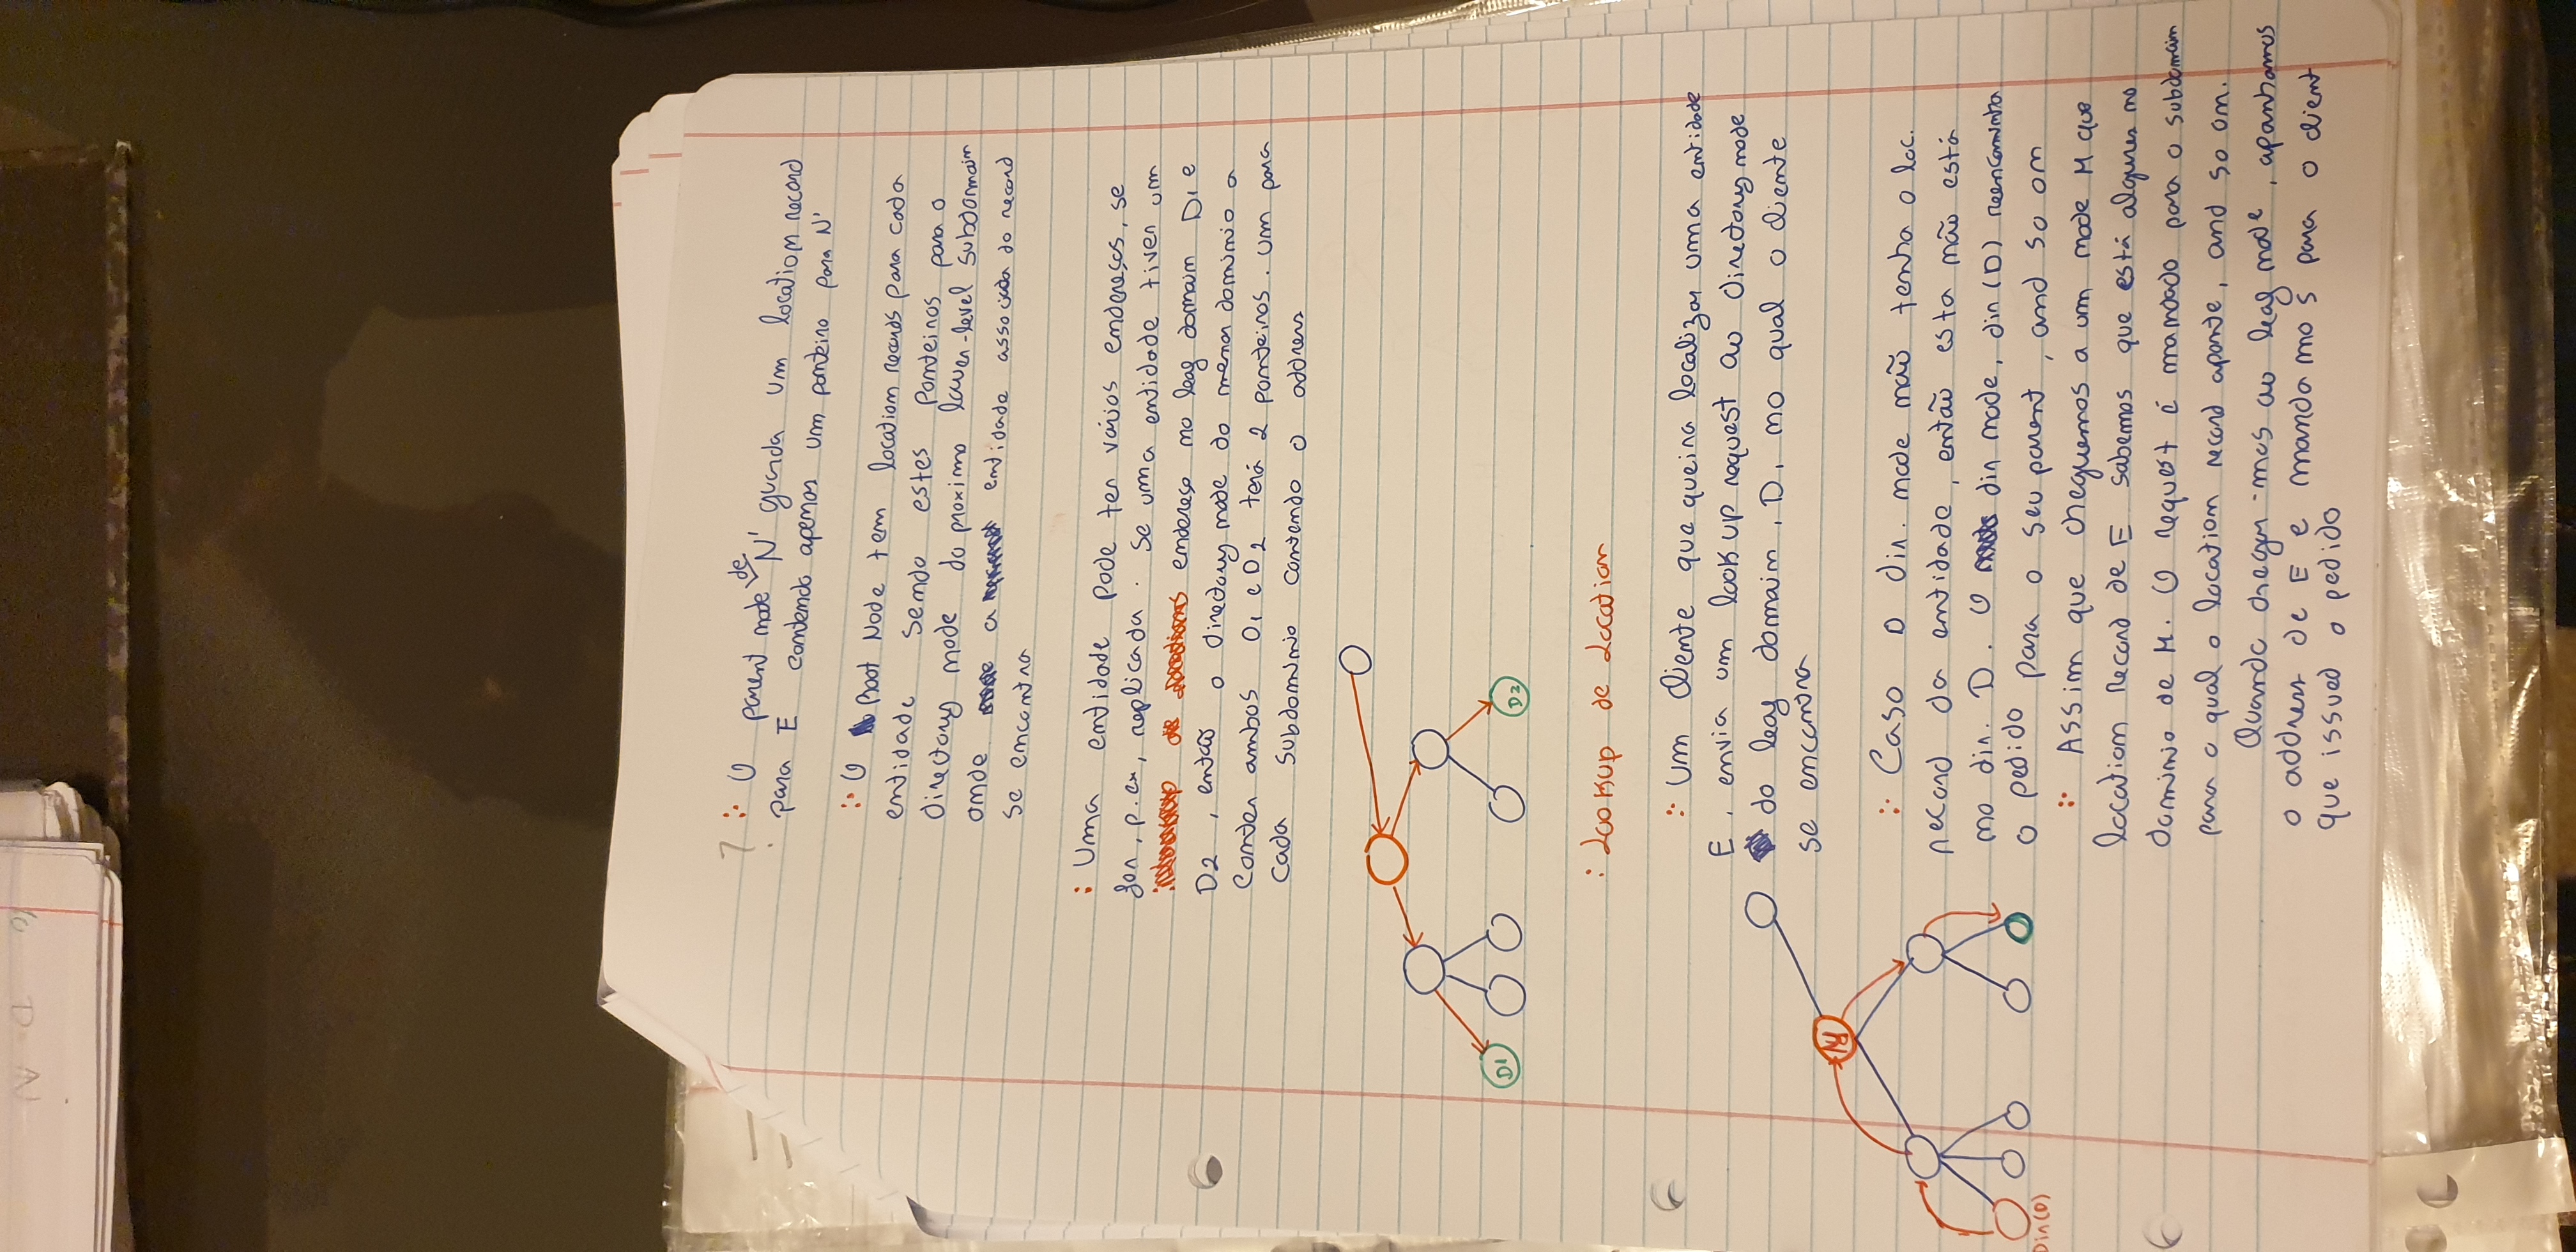 ? :· O parent node de N' guarda um location record
para E contendo apenas um ponteiro para N'
:· O Root Node tem location records para cada
entidade sendo estes ponteiros para o
directory node do proximo lower-level subdomain
onde a entidade associada do record
se encontra
: Uma entidade pode ter vários endereços, se
for, p.ex, replicada. Se uma entidade tiver um
endereço no leaf domain D1 e
D2, então o directory node do menor dominio a
conter ambos D1 e D2 terá 2 ponteiros. um para
cada subdominio contendo o address
D1
D2
: Lookup de Location
:· Um cliente que queira localizar uma entidade
E, envia um look up request ao directory node
do leaf domain, D, no qual o cliente
se encontra
M
:· Caso o dir. node não tenha o loc.
record da entidade, então esta não está
no dir. D. O dir node, dir(D) reencaminha
o pedido para o seu parent, and so on
Dir(D)
:· Assim que cheguemos a um node M que
location record de E sabemos que está algures no
dominio de M. O request é mandado para o subdomain
para o qual o location record aponte, and so on.
Quando chegar-mos ao leaf node, apanhamos
o address de E e mandamos para o client
que issued o pedido